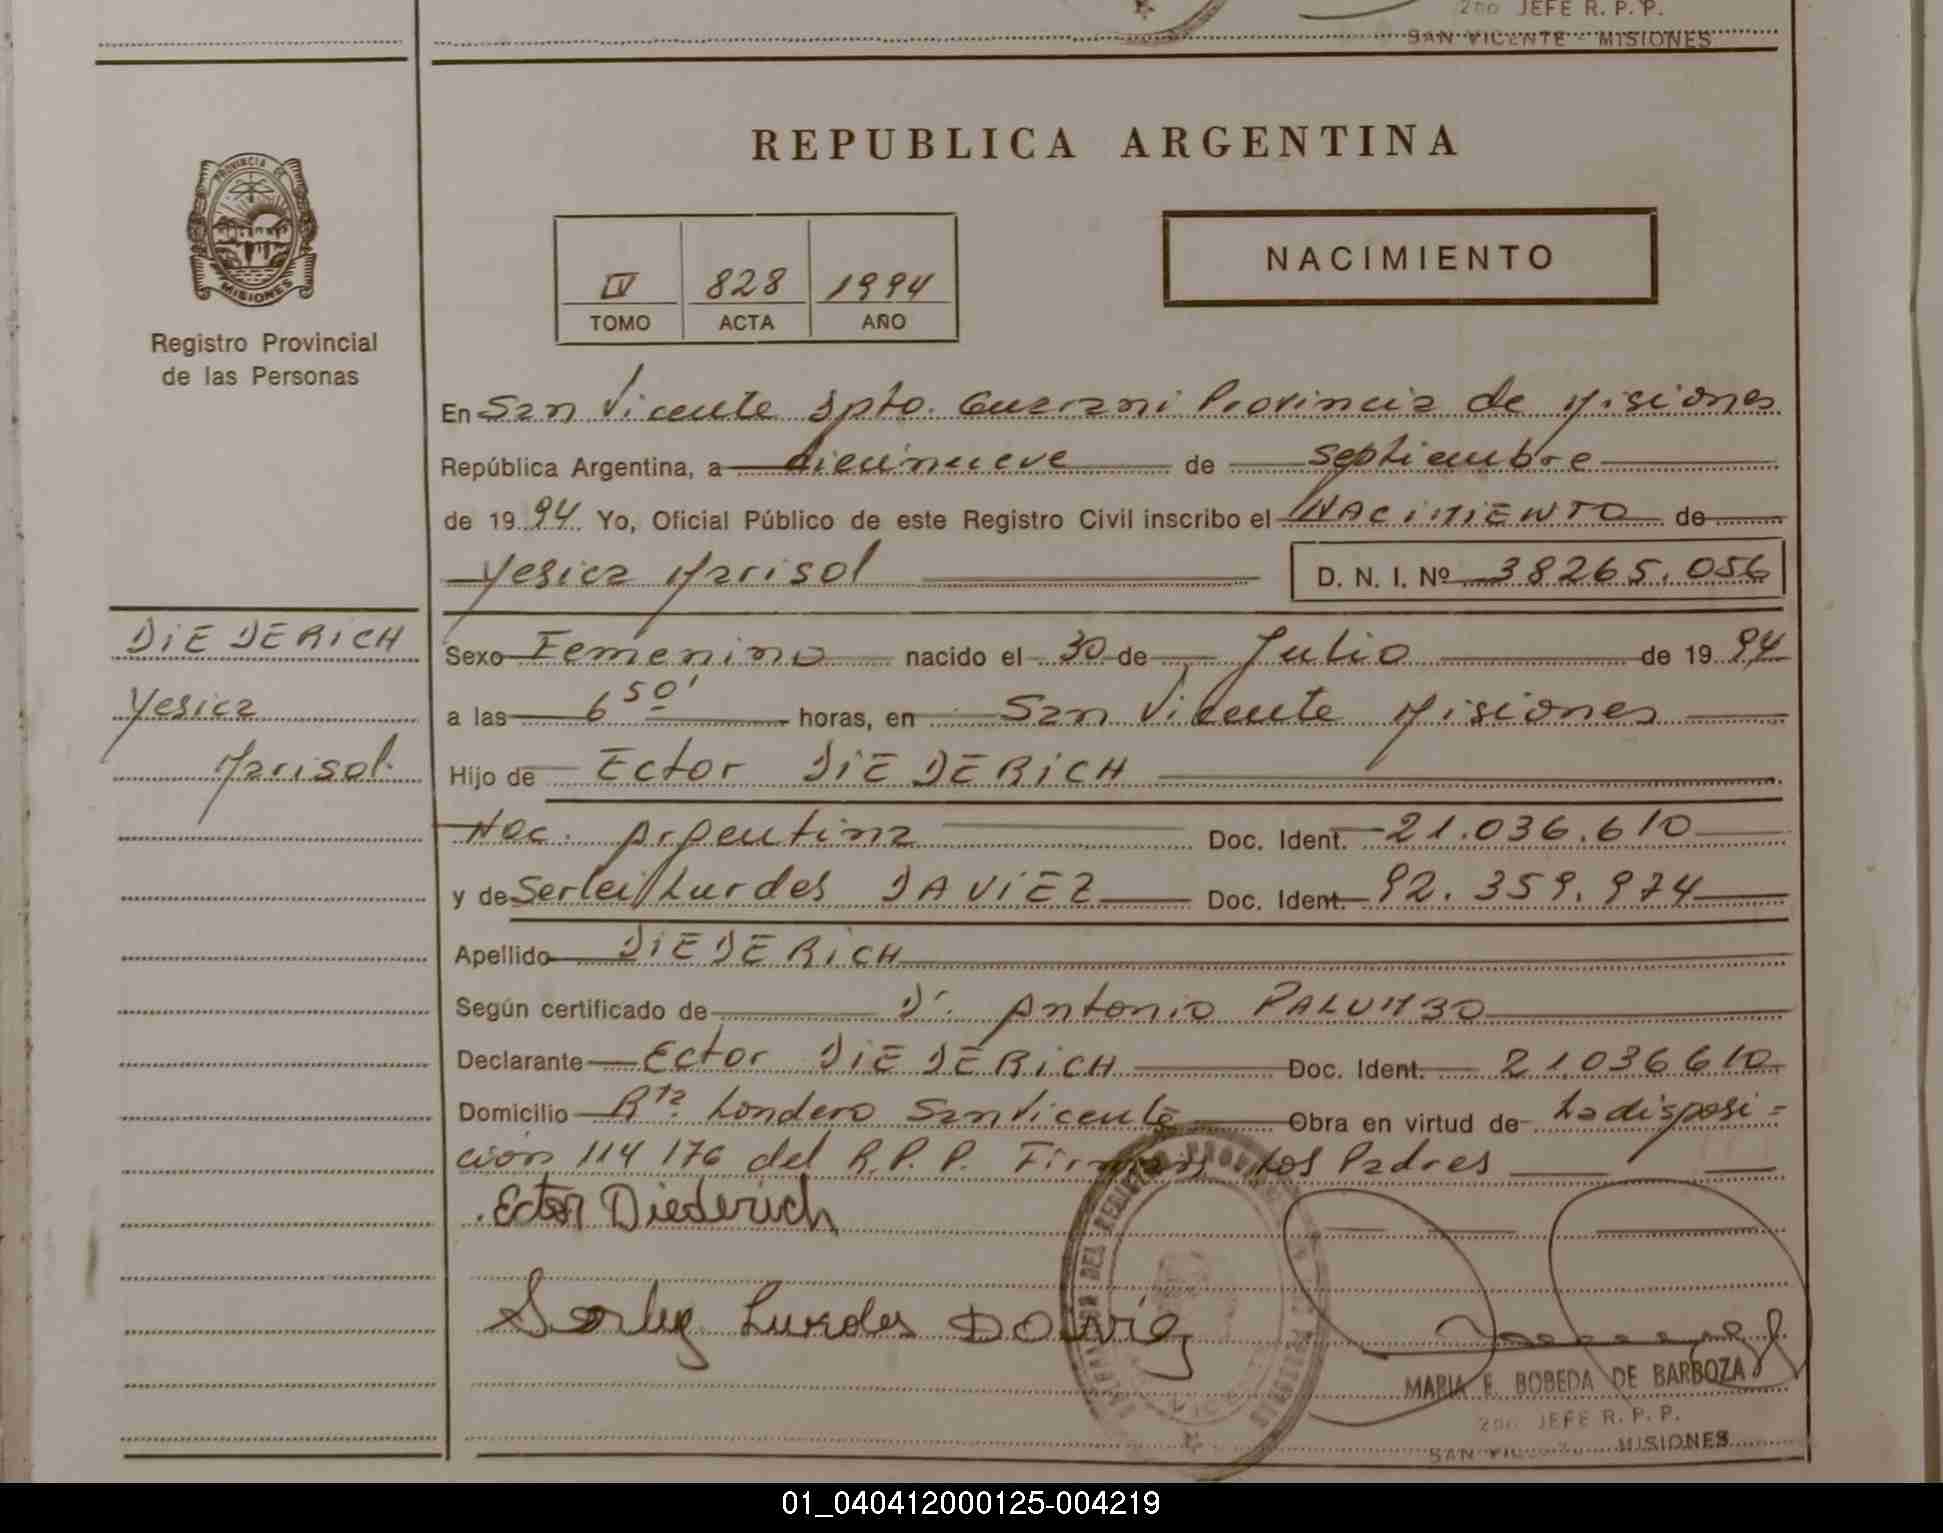 2do JEFE R. P. P.
SAN VICENTE - MISIONES
REPUBLICA ARGENTINA
PROVINCIA DE
MISIONES
Registro Provincial
de las Personas
IV 828 1994
TOMO ACTA AÑO
NACIMIENTO
En San Vicente Dpto. Guarani Provincia de Misiones
República Argentina, a diecinueve de septiembre
de 1994 Yo, Oficial Público de este Registro Civil inscribo el NACIMIENTO de
Yesica Marisol D. N. I. Nº 38265.056
DIEDERICH
Yesica
Marisol
Sexo Femenino nacido el 30 de Julio de 1994
a las 6 50' horas, en San Vicente Misiones
Hijo de Ector DIEDERICH
Nac. Argentina Doc. Ident. 21.036.610
y de Serlei Lurdes DAVIEZ Doc. Ident. 92.359.974
Apellido DIEDERICH
Según certificado de Dr. Antonio PALUMBO
Declarante Ector DIEDERICH Doc. Ident. 21.036610
Domicilio Rta. Londero San Vicente Obra en virtud de La disposi=
ción 114 176 del R.P.P. Firman Los Padres
Ector Diederich
Lurdes
MARIA E. BOBEDA DE BARBOZA
2do JEFE R. P. P.
SAN VICENTE MISIONES
01_040412000125-004219